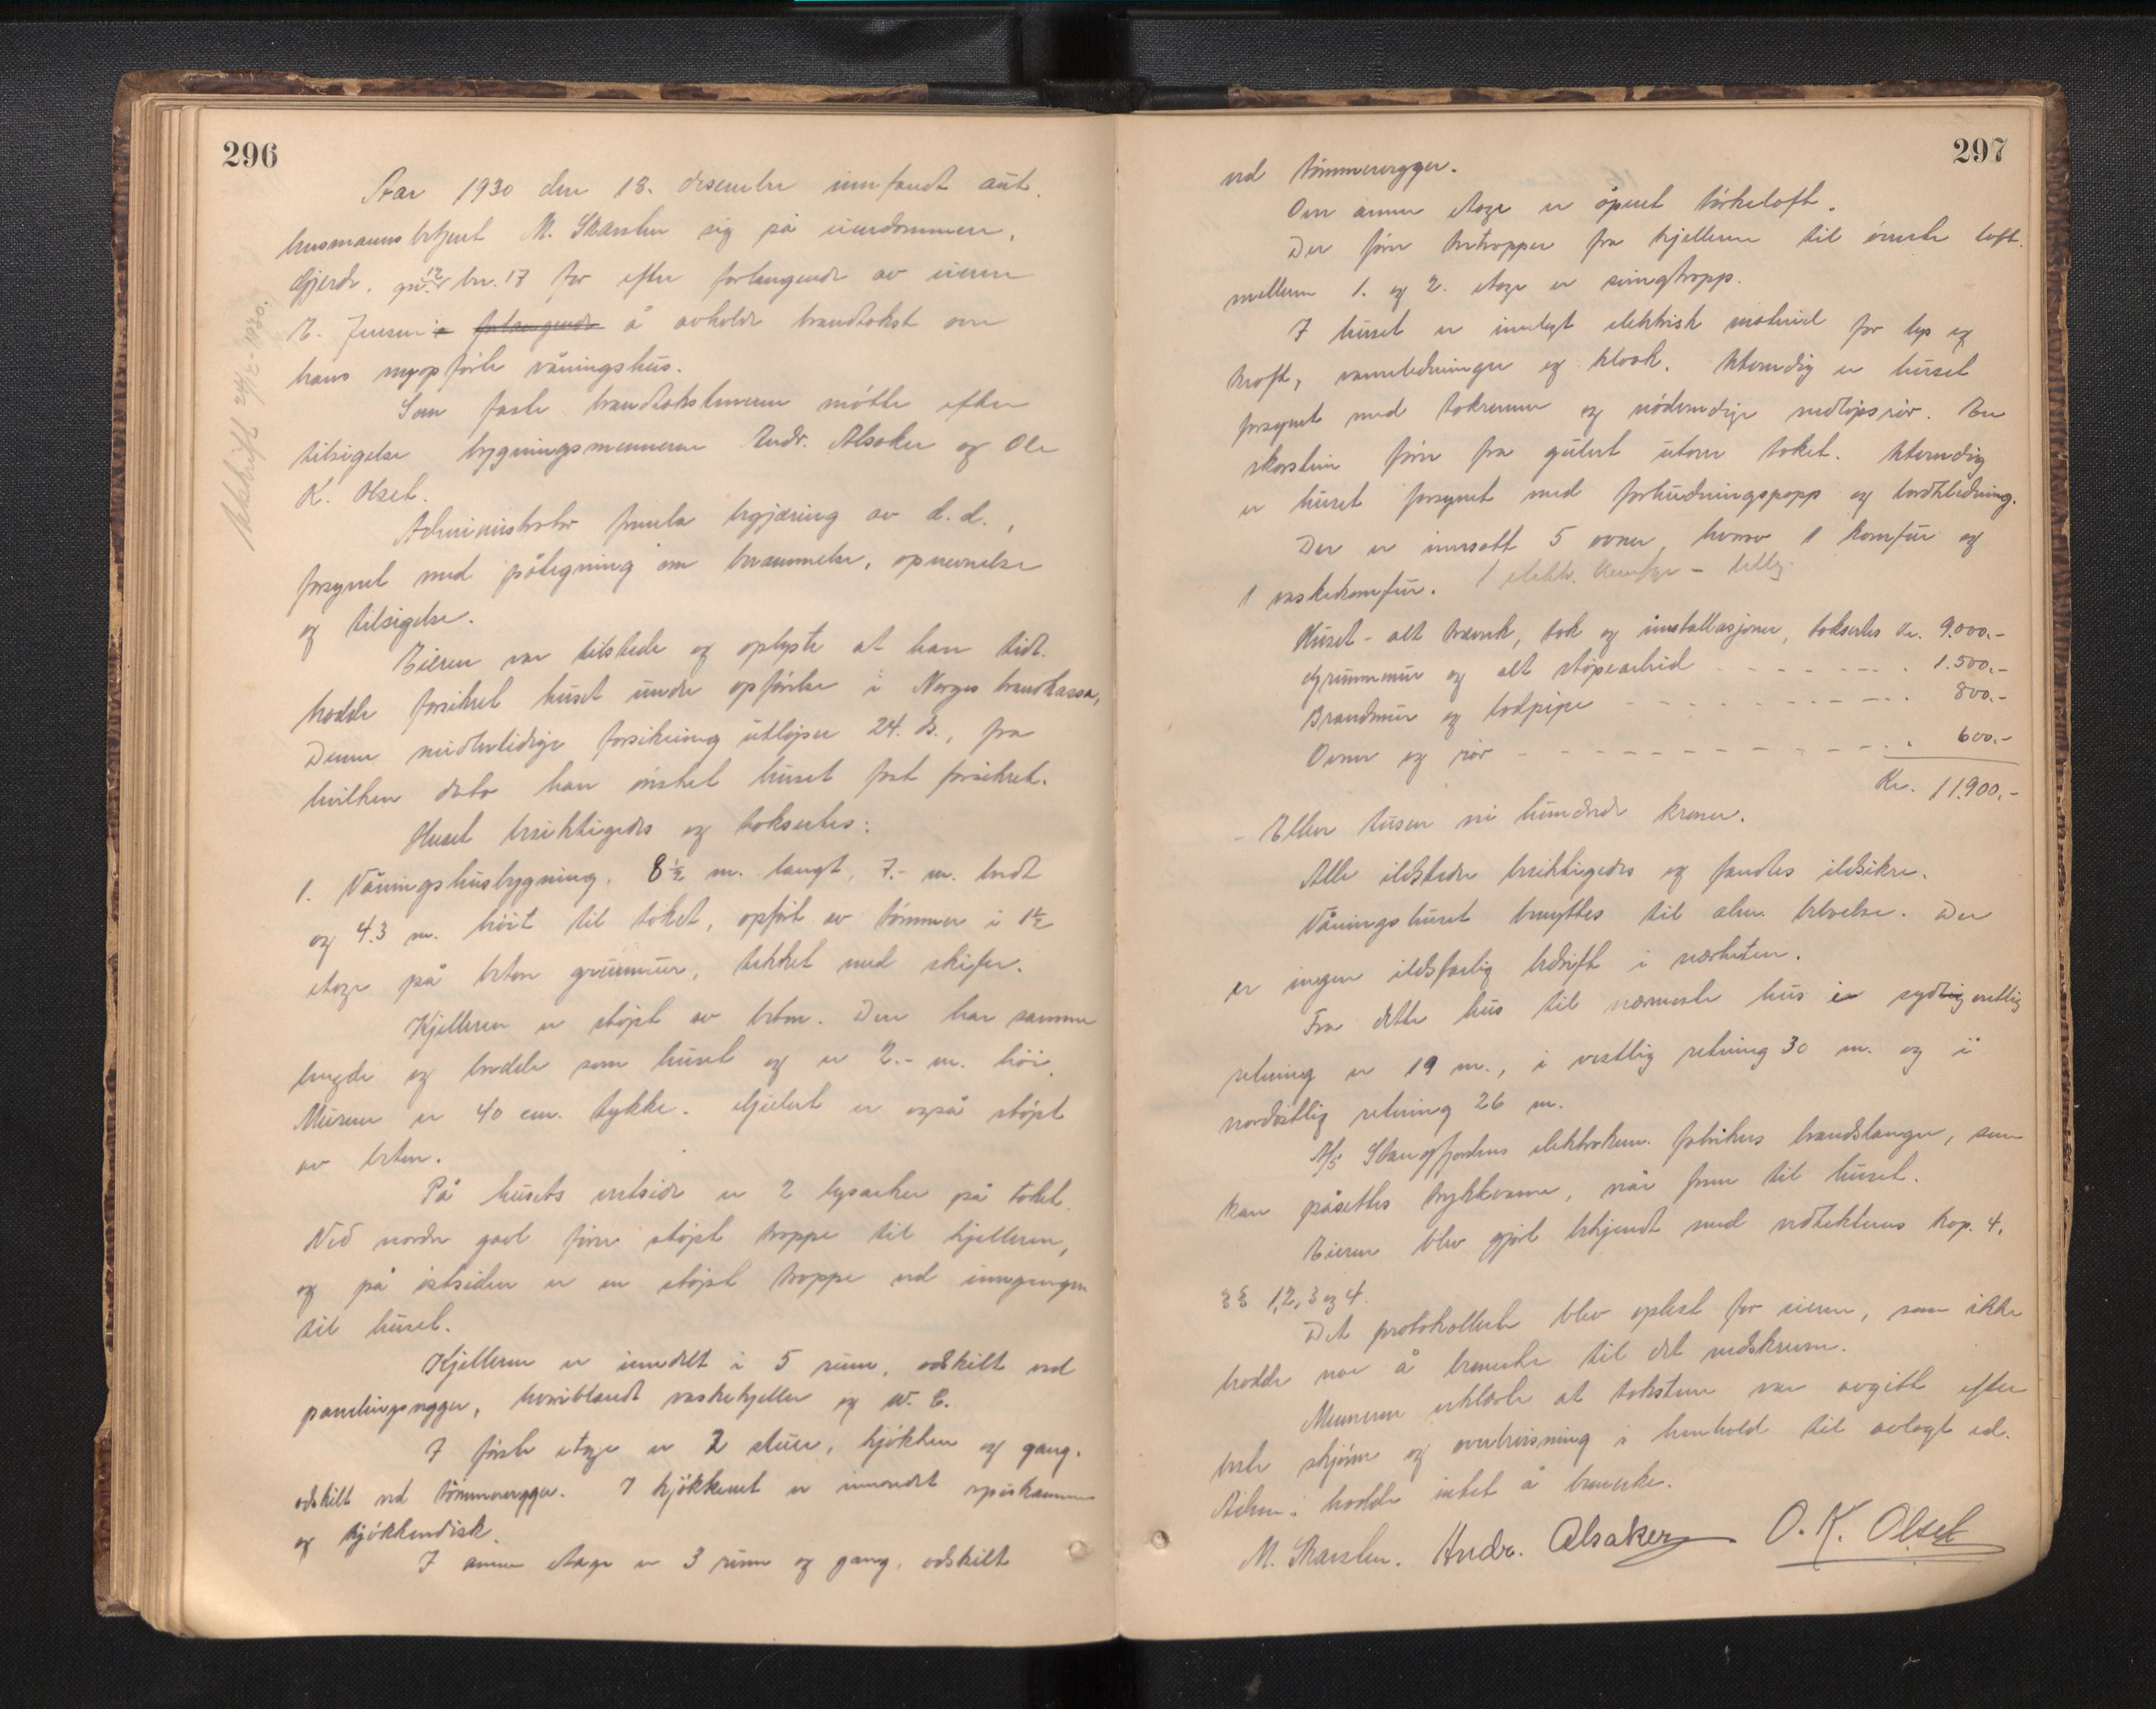 296
År 1930 den 18. desember innfandt aut.
lensmannsbetjent M. Skarsten sig på eiendommen,
Gjerde, gnr. 12 bnr. 17 for efter forlangende av eieren
E. Jensen å avholde brandtakst over
hans nyopførte våningshus.
Som faste brandtakstmenn møtte efter
tilsigelse bygningsmennene Andr. Alsaker og Ole
K. Olset.
Administrator fremla begjæring av d.d.,
forsynet med påtegning om berammelse, opnevnelse
og tilsigelse.
Eieren var tilstede og oplyste at han tidl.
hadde forsikret huset under opførelse i Norges brandkasse,
Denne midlertidige forsikring utløper 24. ds., fra
hvilken dato han ønsket huset fast forsikret.
Huset besiktigedes og takseres:
1. Våningshusbygning, 8 1/2 m. langt, 7.- m. bredt
og 4.3 m. høit til taket, opført av tømmer i 1 1/2
etage på beton grunnmur, tekket med skifer.
Kjelleren er støpt av beton. Den har samme
lengde og bredde som huset og er 2.- m. høi.
Muren er 40 cm. tykke. Gjulvet er også støpt
av beton.
På husets vestside er 2 lysarker på taket.
Ved nordre gavl fører støpt trappe til kjelleren,
og på østsiden er en støpt trappe ved inngangen
til huset.
Kjelleren er inndelt i 5 rum, adskilt ved
panelingsvegger, hvoriblandt vaskekjeller og W.C.
I første etage er 2 stuer, kjøkken og gang,
adskilt ved tømmervegger. I kjøkkenet er innredet spiskammer
og kjøkkendisk.
I annen etage er 3 rum og gang, adskilt
Utskrift 24/12-1930.
297
ved tømmervegger.
Over annen etage er åpent tørkeloft.
Der fører tretrapper fra kjelleren til øverste loft.
mellem 1. og 2. etage er svingtrapp.
I huset er innlagt elektrisk materiel for lys og
kraft, vannledninger og kloak. Utvendig er huset
forsynet med takrenner og nødvendige nedløpsrør. En
skorstein fører fra gulvet utover taket. Utvendig
er huset forsynet med forhudningspapp og bordkledning.
Der er innsatt 5 ovner, hvorav 1 komfur og
1 vaskekomfur. 1 elektr. komfyr -
Huset - alt treverk, tak og innstallasjoner, takseres kr. 9.000.-
Grunnmur og alt støpearbeid - - - - 1.500.-
Brandmur og lodpipe - - - - 800.-
Ovner og rør - - - - 600.-
Kr. 11.900.-
- Elleve tusen ni hundrede kroner.
Alle ildsteder besiktigedes og fandtes ildsikre.
Våningshuset benyttes til alm. beboelse. Der
er ingen ildsfarlig bedrift i nærheten.
Fra dette hus til nærmeste hus i sydvestlig
retning er 19 m., i vestlig retning 30 m. og i
nordøstlig retning 26 m.
A/S Stangfjordens elektrokem. fabrikers brandslanger, som
kan påsettes trykkvann, når frem til huset.
Eieren blev gjort bekjendt med vedtektenes kap. 4,
§§ 1, 2, 3 og 4.
Det protokollerte blev oplest for eieren, som ikke
hadde noe å bemerke til det nedskrevne.
Mennene erklærte at taksten var avgitt efter
beste skjønn og overbevisning i henhold til avlagt ed.
Adm. hadde intet å bemerke.
M. Skarsten. Andr. Alsaker O. K. Olset